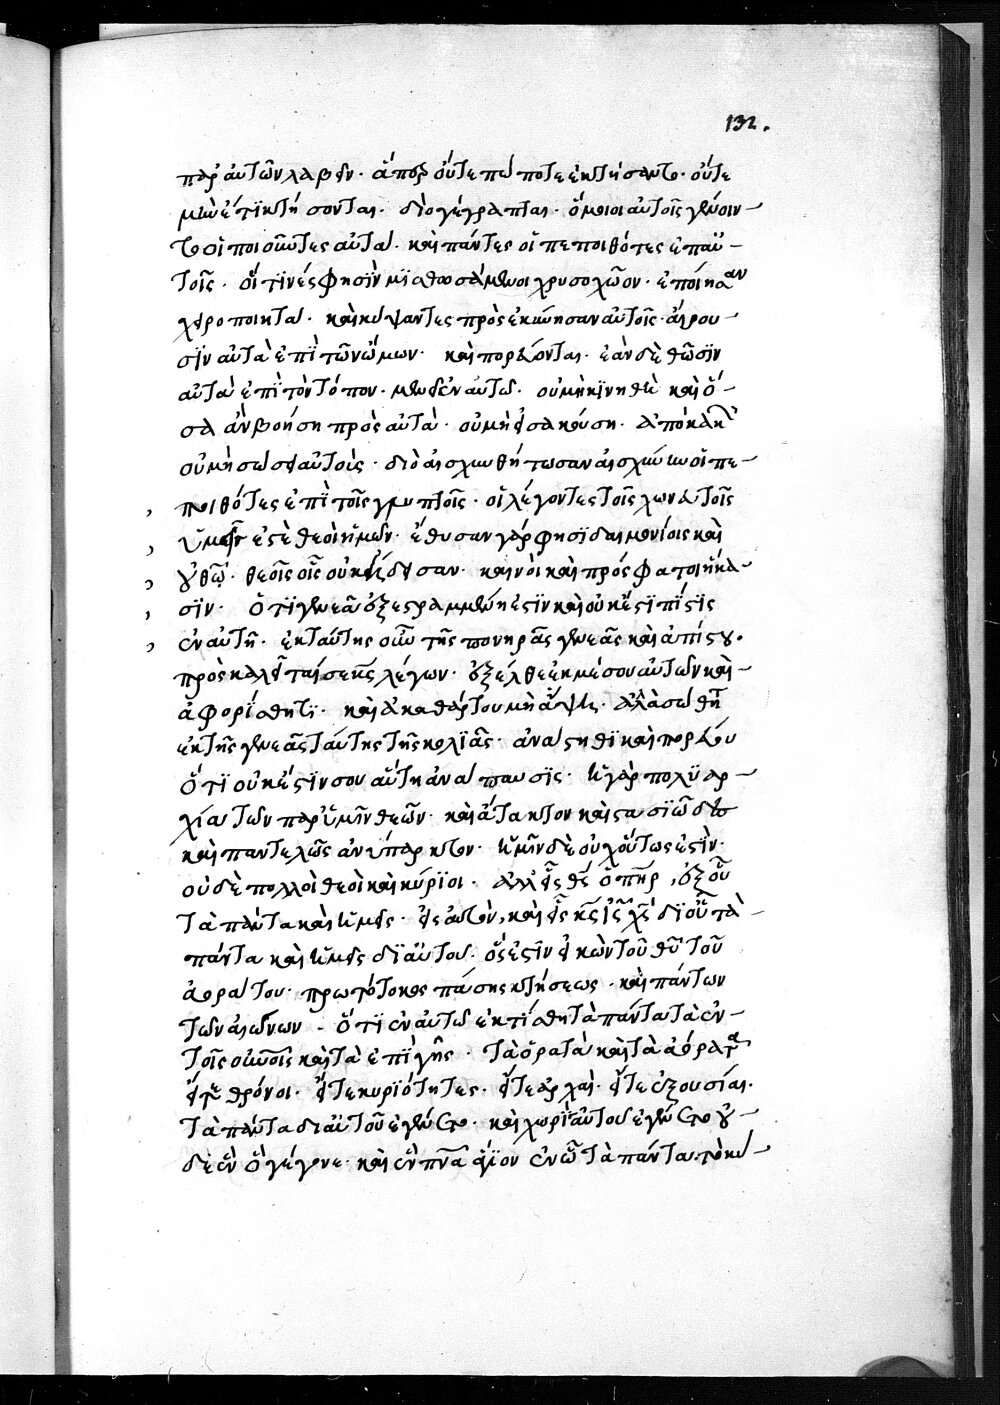 132.
παρ αὐτῶν λαβεῖν· ἅπερ οὔτε πώποτε ἐκτήσαντο· οὔτε
μὴν ἔτι κτήσονται. διὸ γέγραπται· ὅμοιοι αὐτοῖς γένοιν-
το οἱ ποιοῦντες αὐτά· καὶ πάντες οἱ πεποιθότες ἐπ αὐ-
τοῖς· οἵτινές φησὶν μισθωσάμενοι χρυσοχῶον· ἐποίησαν
χειροποίητα· καὶ κύψαντες προσεκύνησαν αὐτοῖς· αἴρου-
σιν αὐτὰ ἐπὶ τῶν ὤμων· καὶ πορεύονται· ἐὰν δὲ θῶσιν
αὐτὰ ἐπὶ τὸν τόπον· μένει ἐν αὐτῶ· οὐ μὴ κινηθῆ καὶ ὅ-
σα ἂν βοήση πρὸς αὐτά· οὐ μὴ εἰσακούση· ἀπὸ κακῶν
οὐ μὴ σώσει αὐτούς· διὸ αἰσχυνθήτωσαν αἰσχύνην οἱ πε-
ποιθότες ἐπὶ τοῖς γλυπτοῖς· οἱ λέγοντες τοῖς χωνευτοῖς
ὑμεῖς ἐστὲ θεοὶ ἡμῶν· ἔθυσαν γάρ φησι δαιμονίοις καὶ
οὐ θεῶ· θεοῖς οἷς οὐκ ἤδεισαν· καινοὶ καὶ πρόσφατοι ἥκα-
σιν· ὅτι γενεὰ ἐξεστραμμένη ἐστὶν καὶ οὐκ ἔστι πίστις
ἐν αὐτῆ· ἐκ ταύτης οὖν τῆς πονηρᾶς γενεᾶς καὶ ἀπίστου·
προσκαλεῖταί σε κς λέγων· ἔξελθε ἐκ μέσου αὐτῶν καὶ
ἀφορίσθητι· καὶ ἀκαθάρτου μὴ ἅψη· ἀλλὰ σώθητι
ἐκ τῆς γενεᾶς ταύτης τῆς σκολιᾶς· ἀνάστηθι καὶ πορεύου
ὅτι οὐκ ἔστιν σου αὕτη ἀνάπαυσις· ἡ γὰρ πολυαρ-
χία τῶν παρ ὑμῖν θεῶν· καὶ ἄτακτον καὶ στασιῶδες
καὶ παντελῶς ἀνύπαρκτον· ἡμῖν δὲ οὐχ οὕτως ἐστὶν·
οὐδὲ πολλοὶ θεοὶ καὶ κύριοι· ἀλλ εἷς θς ὁ πηρ, ἐξ οὗ
τὰ πάντα καὶ ἡμεῖς· εἰς αὐτόν, καὶ εἷς κς ις χς δι οὗ τὰ
πάντα καὶ ἡμεῖς δι αὐτοῦ· ὅς ἐστιν εἰκὼν τοῦ θυ τοῦ
ἀοράτου· πρωτότοκος πάσης κτίσεως· καὶ πάντων
τῶν αἰώνων· ὅτι ἐν αὐτῶ ἐκτίσθη τὰ πάντα τὰ ἐν
τοῖς οὐνοῖς καὶ τὰ ἐπὶ γῆς· τὰ ὁρατὰ καὶ τὰ ἀόρατα
εἴτε θρόνοι· εἴτε κυριότητες· εἴτε ἀρχαὶ· εἴτε ἐξουσίαι·
τὰ πάντα δι αὐτοῦ ἐγένετο· καὶ χωρὶς αὐτοῦ ἐγένετο οὐ-
δὲ ἓν ὃ γέγονε· καὶ ἓν πνα ἅγιον ἐν ὧ τὰ πάντα·